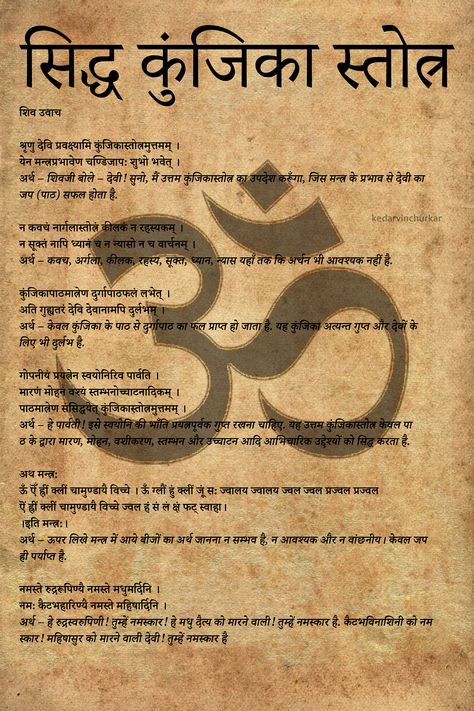 सिद्ध कुंजिका स्तोत्र
शिव उवाच
श्रृणु देवि प्रवक्ष्यामि कुंजिकास्तोत्रमुत्तमम् ।
येन मन्त्रप्रभावेण चण्डिजाप: शुभो भवेत् ।
अर्थ – शिवजी बोले – देवी! सुनो, मैं उत्तम कुंजिकास्तोत्र का उपदेश करूँगा, जिस मन्त्र के प्रभाव से देवी का
जप (पाठ) सफल होता है.
kedarvinchurkar
न कवचं नार्गलास्तोत्रं कीलकं न रहस्यकम् ।
न सूक्तं नापि ध्यानं च न न्यासो न च वार्चनम् ।
अर्थ – कवच, अर्गला, कीलक, रहस्य, सूक्त, ध्यान, न्यास यहाँ तक कि अर्चन भी आवश्यक नहीं है.
कुंजिकापाठमात्रेण दुर्गापाठफलं लभेत् ।
अति गुह्यतरं देवि देवानामपि दुर्लभम् ।
अर्थ – केवल कुंजिका के पाठ से दुर्गापाठ का फल प्राप्त हो जाता है. यह कुंजिका अत्यन्त गुप्त और देवों के
लिए भी दुर्लभ है.
गोपनीयं प्रयत्नेन स्वयोनिरिव पार्वति ।
मारणं मोहनं वश्यं स्तम्भनोच्चाटनादिकम् ।
पाठमात्रेण संसिद्धयेत् कुंजिकास्तोत्रमुत्तमम् ।
अर्थ – हे पार्वती! इसे स्वयोनि की भाँति प्रयत्नपूर्वक गुप्त रखना चाहिए. यह उत्तम कुंजिकास्तोत्र केवल पा
ठ के द्वारा मारण, मोहन, वशीकरण, स्तम्भन और उच्चाटन आदि आभिचारिक उद्देश्यों को सिद्ध करता है.
अथ मन्त्र:
ऊँ ऎं ह्रीं क्लीं चामुण्डायै विच्चे । ऊँ ग्लौं हुं क्लीं जूं स: ज्वालय ज्वालय ज्वल ज्वल प्रज्वल प्रज्वल
ऎं ह्रीं क्लीं चामुण्डायै विच्चे ज्वल हं सं लं क्षं फट् स्वाहा।
।इति मन्त्र:।
अर्थ – ऊपर लिखे मन्त्र में आये बीजों का अर्थ जानना न सम्भव है, न आवश्यक और न वांछनीय। केवल जप
ही पर्याप्त है.
नमस्ते रुद्ररूपिण्यै नमस्ते मधुमर्दिनि ।
नम: कैटभहारिण्यै नमस्ते महिषार्दिनि ।
अर्थ – हे रुद्रस्वरुपिणी! तुम्हें नमस्कार! हे मधु दैत्य को मारने वाली! तुम्हें नमस्कार है. कैटभविनाशिनी को नम
स्कार! महिषासुर को मारने वाली देवी! तुम्हें नमस्कार है